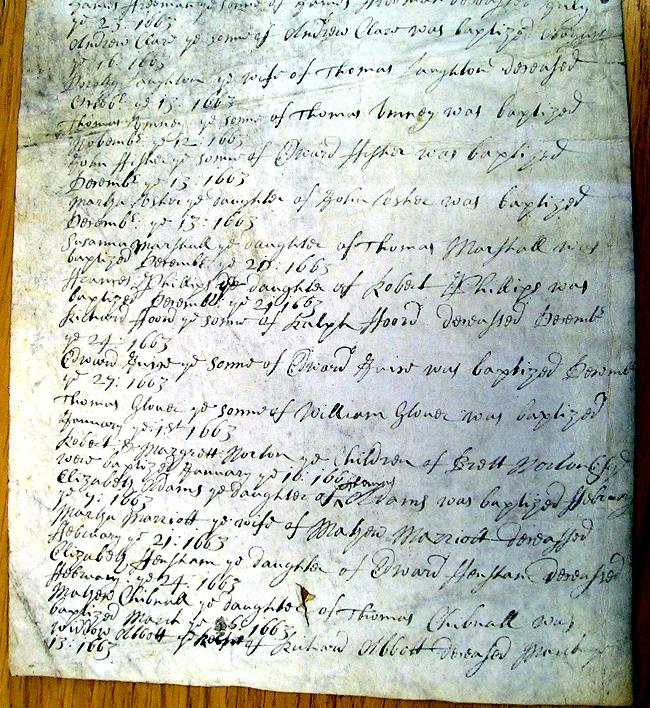 James Freeman ye sonne of James Freeman
ye 23: 1663
Andrew Clare ye sonne of Andrew Clare was baptized August
ye 16: 1663
Laughton ye wife of Thomas Laughton deceased
Octobr. ye 1 : 1663
Thomas ye sonne of Thomas was baptized
Novembr. ye 12: 1663
ye sonne of Edward ffisher was baptized
Decembr. ye 13: 1663
Martha ye daughter of John was baptized
Decembr: ye 13: 1663
Susanna Marshall ye daughter of Thomas Marshall was
baptized Decembr. ye 1663
Phillips ye daughter of Robert Phillips was
baptized Decembr: ye 24 1663
Richard Hoord ye sonne of Ralph Hoord deceased Decembr.
ye 24: 1663
Edward ye sonne of Edward was baptized Decembr
ye 27: 1663
Thomas Glover ye sonne of William Glover was baptized
January ye 1st 1663
Robert & Margrett Norton ye Children of Brett Norton
were baptized January ye 16: 1663
Elizabeth Adams ye daughter of Thomas Adams was baptized ffebruary
ye 7: 1663
Martha Marriott ye wife of Mathew Marriott deceased
ffebruary ye 21: 1663
Elizabeth Hensham ye daughter of Edward Hensham deceased
ffebruary: ye 24: 1663
Chibnall ye daughter of Thomas Chibnall was
baptized March ye 1663
Widdow Abbott of Richard Abbott deceased March ye
13: 1663